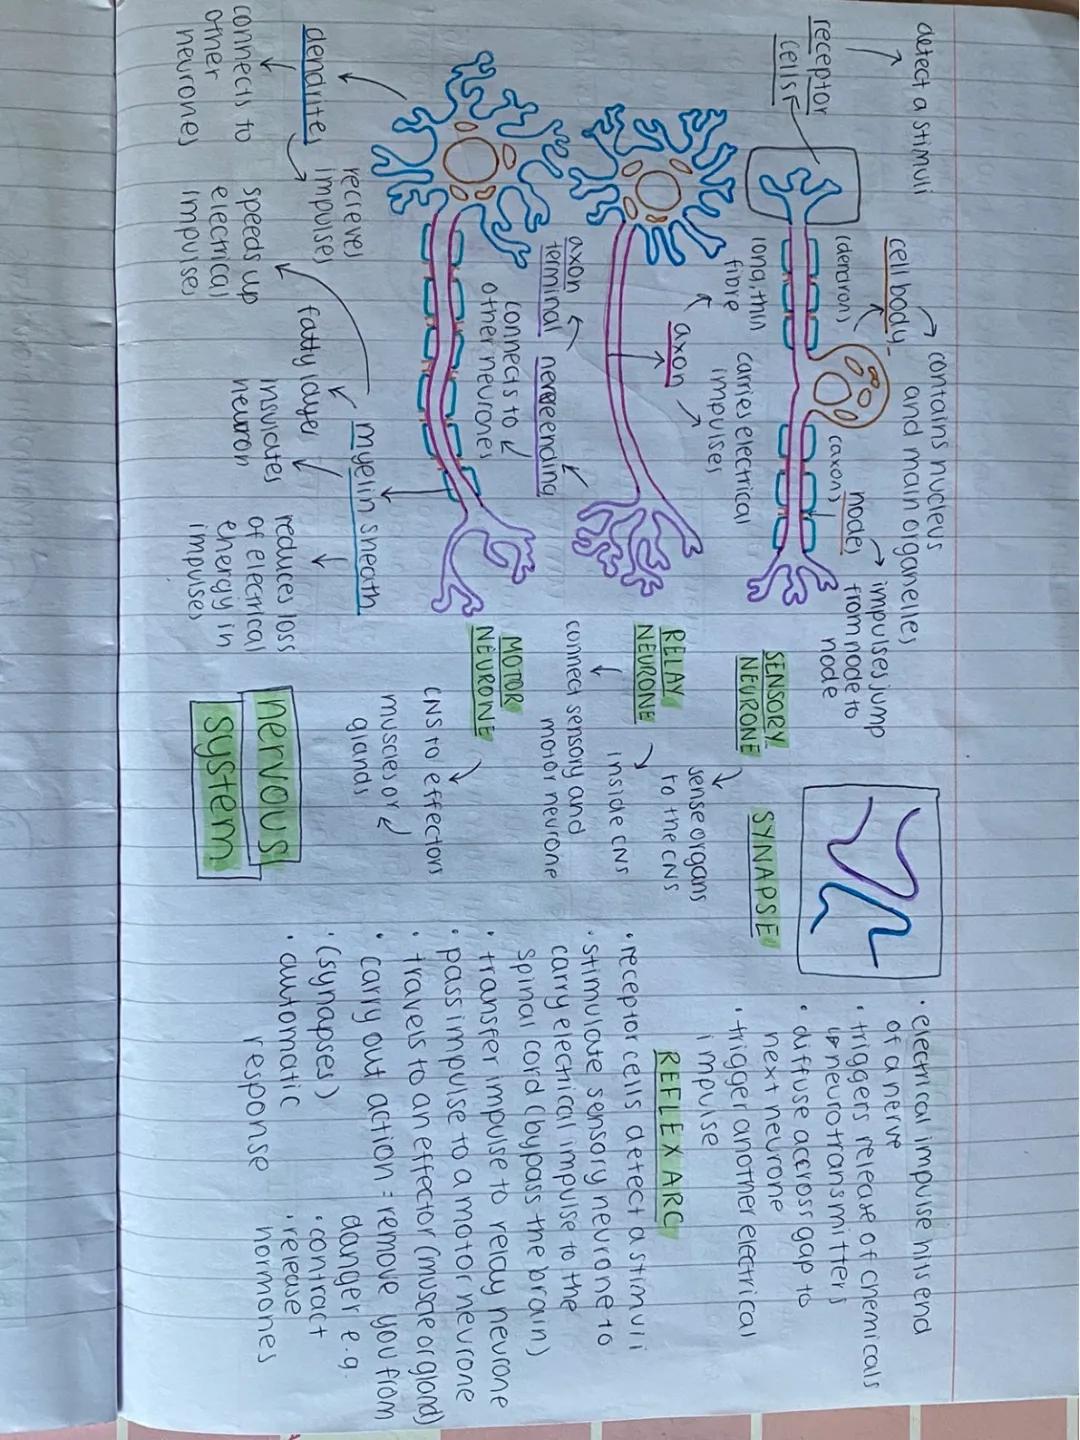 detect a stimuli
receptor
cells
cell body
contains nucleus
and main organelles
(dendron)
(axon)
node
impulses jump
from node to
node
SENSORY
NEURONE
sense organs
to the CNS
long, thin
fibre
axon
carries electrical
impulses
RELAY
NEURONE
inside CNS
connect sensory and
motor neurone
axon
terminal
nerve ending
connects to
other neurones
MOTOR
NEURONE
CNS to effectors
muscles or
glands
dendrites
recieves
impulses
connects to
other
neurones
myelin sheath
fatty layer
speeds up
electrical
impulses
insulates
neuron
reduces loss
of electrical
energy in
impulses
nervous
system
SYNAPSE
• electrical impulse hits end
of a nerve
• triggers release of chemicals
↳ neurotransmitters
• diffuse across gap to
next neurone
• trigger another electrical
impulse
REFLEX ARC
• receptor cells detect a stimuli
• stimulate sensory neurone to
carry electrical impulse to the
spinal cord (bypass the brain)
• transfer impulse to relay neurone
• pass impulse to a motor neurone
• travels to an effector (muscle or gland)
• carry out action = remove you from
danger e.g.
• (synapses)
• contract
• automatic
response
• release
hormones